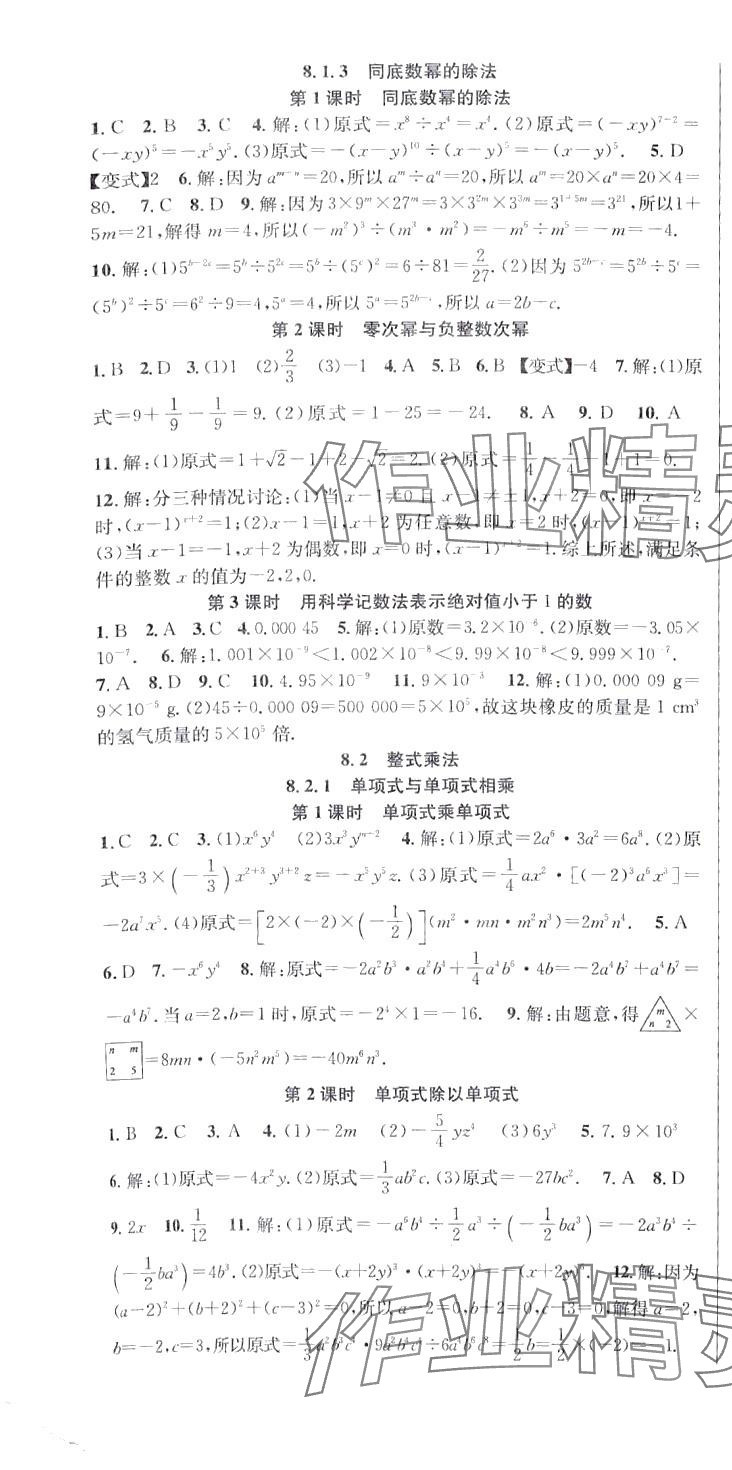 8.1.3 同底数幂的除法
第1课时 同底数幂的除法
1.C 2.B 3.C 4.解:(1)原式=x⁸÷x⁴=x⁴.(2)原式=(-xy)⁷⁻²=
(-xy)⁵=-x⁵y⁵.(3)原式=-(x-y)¹⁰÷(x-y)⁵=-(x-y)⁵. 5.D
【变式】2 6.解:因为aᵐ⁻ⁿ=20,所以aᵐ÷aⁿ=20,所以aᵐ=20×aⁿ=20×4=
80. 7.C 8.D 9.解:因为3×9ᵐ×27ᵐ=3×3²ᵐ×3³ᵐ=3¹⁺⁵ᵐ=3²¹,所以1+
5m=21,解得m=4,所以(-m²)³÷(m³·m²)=-m⁶÷m⁵=-m=-4.
10.解:(1)5ᵇ⁻²ᶜ=5ᵇ÷5²ᶜ=5ᵇ÷(5ᶜ)²=6÷81=2/27.(2)因为5²ᵇ⁻ᶜ=5²ᵇ÷5ᶜ=
(5ᵇ)²÷5ᶜ=6²÷9=4,5ᵃ=4,所以5ᵃ=5²ᵇ⁻ᶜ,所以a=2b-c.
第2课时 零次幂与负整数次幂
1.B 2.D 3.(1)1 (2)2/3 (3)-1 4.A 5.B 6.B 【变式】-4 7.解:(1)原
式=9+1/9-1/9=9.(2)原式=1-25=-24. 8.A 9.D 10.A
11.解:(1)原式=1+√2-1+2-√2=2.(2)原式=1/4-1/4-1+1=0.
12.解:分三种情况讨论:(1)当x-1≠0且x-1≠±1,x+2=0,即x=-2
时,(x-1)ˣ⁺²=1;(2)x-1=1,x+2为任意数,即x=2时,(x-1)ˣ⁺²=1;
(3)当x-1=-1,x+2为偶数,即x=0时,(x-1)ˣ⁺²=1.综上所述,满足条
件的整数x的值为-2,2,0.
第3课时 用科学记数法表示绝对值小于1的数
1.B 2.A 3.C 4.0.000 45 5.解:(1)原数=3.2×10⁻⁶.(2)原数=-3.05×
10⁻⁷. 6.解:1.001×10⁻⁹<1.002×10⁻⁸<9.99×10⁻⁸<9.999×10⁻⁷.
7.A 8.D 9.C 10.4.95×10⁻⁹ 11.9×10⁻⁴ 12.解:(1)0.000 09 g=
9×10⁻⁵ g.(2)45÷0.000 09=500 000=5×10⁵,故这块橡皮的质量是1 cm³
的氢气质量的5×10⁵倍.
8.2 整式乘法
8.2.1 单项式与单项式相乘
第1课时 单项式乘单项式
1.C 2.C 3.(1)x⁶y⁴ (2)3x³yᵐ⁻² 4.解:(1)原式=2a⁶·3a²=6a⁸.(2)原
式=3×(-1/3)x²⁺³y³⁺²z=-x⁵y⁵z.(3)原式=1/4ax²·[(-2)³a⁶x³]=
-2a⁷x⁵.(4)原式=[2×(-2)×(-1/2)](m²·mn·m²n³)=2m⁵n⁴. 5.A
6.D 7.-x⁶y⁴ 8.解:原式=-2a²b³·a²b⁴+1/4a⁴b⁶·4b=-2a⁴b⁷+a⁴b⁷=
-a⁴b⁷.当a=2,b=1时,原式=-2⁴×1=-16. 9.解:由题意,得 m n 2 ×
n m 2 5 =8mn·(-5n²m⁵)=-40m⁶n³.
第2课时 单项式除以单项式
1.B 2.C 3.A 4.(1)-2m (2)-5/4yz⁴ (3)6y³ 5.7.9×10³
6.解:(1)原式=-4x²y.(2)原式=1/3ab²c.(3)原式=-27bc². 7.A 8.D
9.2x 10.1/12 11.解:(1)原式=-a⁶b⁴÷1/2a³÷(-1/2ba³)=-2a³b⁴÷
(-1/2ba³)=4b³.(2)原式=-(x+2y)³·(x+2y)=-(x+2y)⁴. 12.解:因为
(a-2)²+(b+2)²+(c-3)²=0,所以a-2=0,b+2=0,c-3=0,解得a=2,
b=-2,c=3,所以原式=
作业精灵
作业精灵